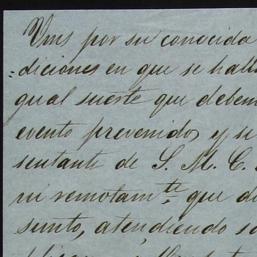 Vms por su conocida
=diciones en que se hall
gual suerte que debem
evento prevenido, y si
sentante de S. M. C.
ni remotam.te que d
sunto, atendiendo s